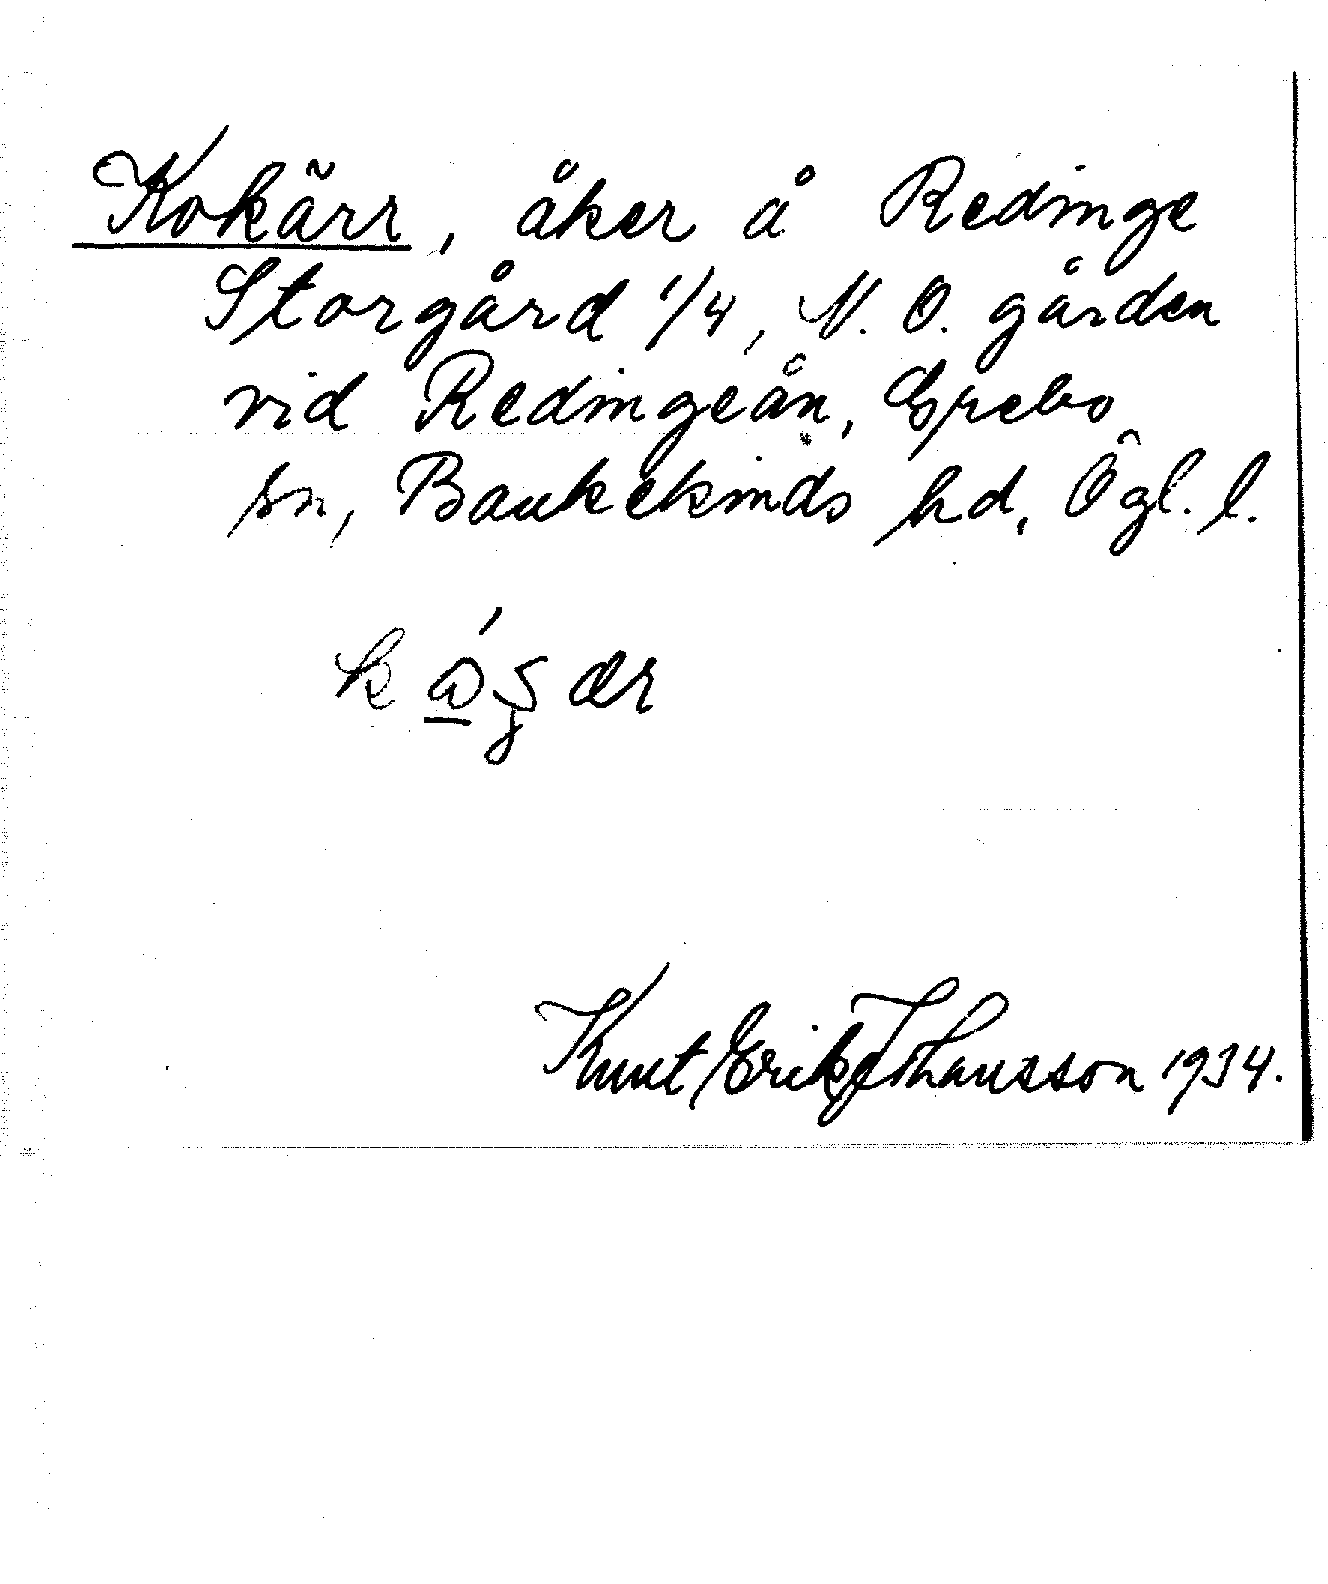 Kokärr, åker å Redinge
Storgård 1/4, N. O. gården
vid Redingeån, Grebo
sn, Bankekinds hd, Ögl. l.
Knut Erik Johansson 1934.